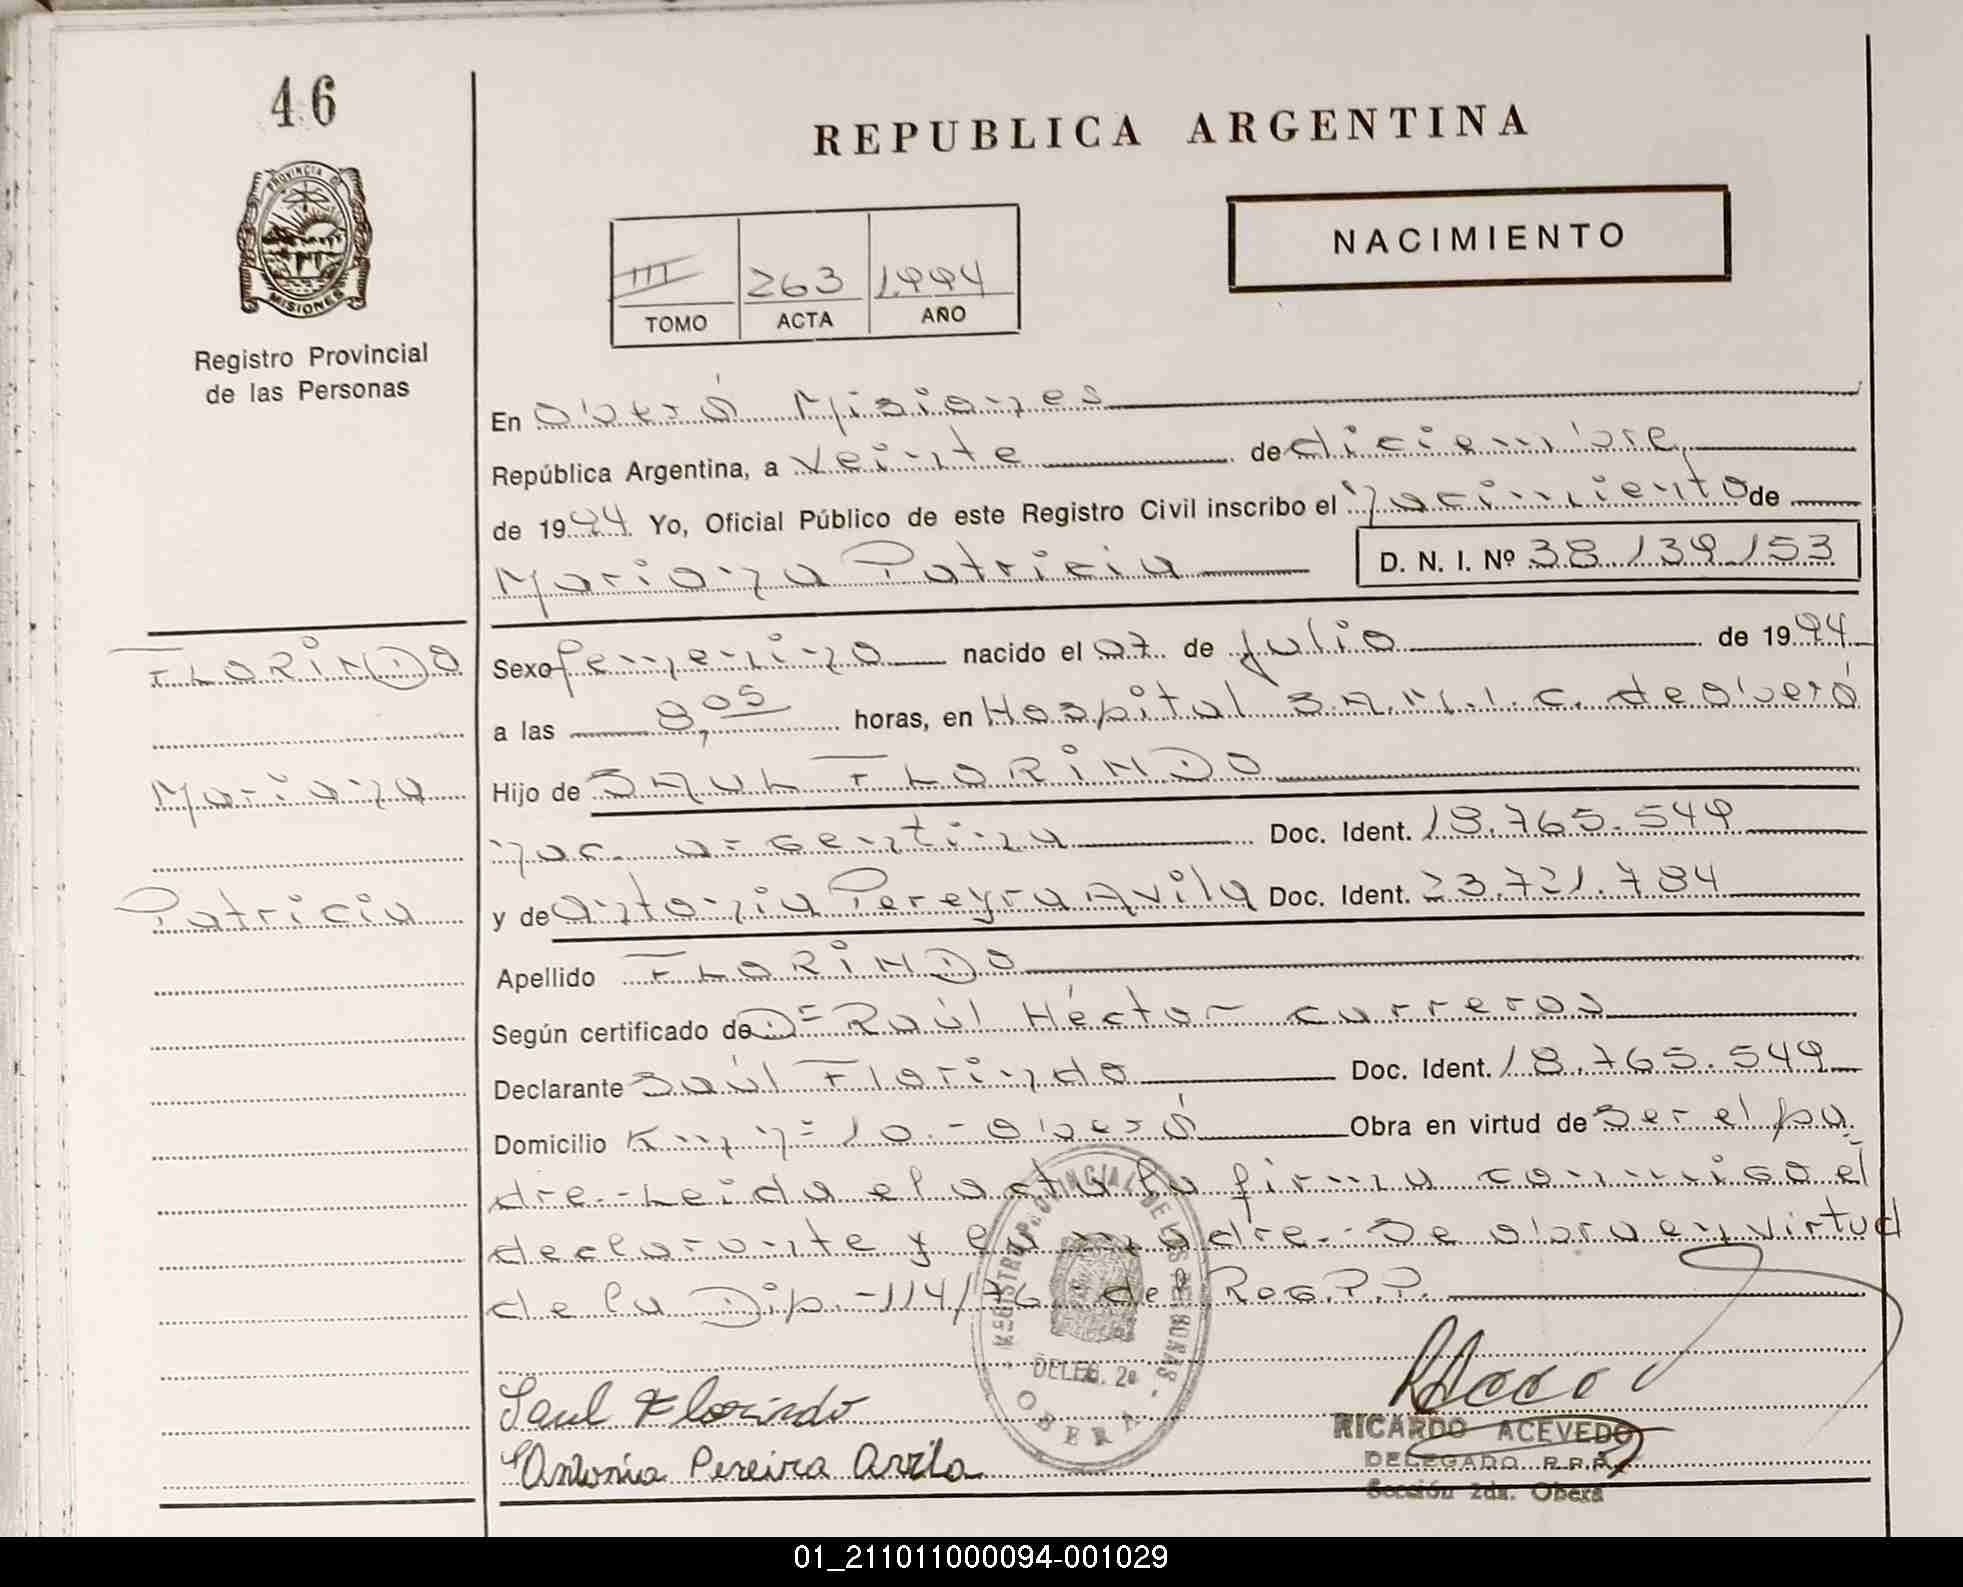 46
PROVINCIA DE
MISIONES
Registro Provincial
de las Personas
REPUBLICA ARGENTINA
NACIMIENTO
III 263 1994
TOMO ACTA AÑO
En Oberá Misiones
República Argentina, a veinte de diciembre
de 1994 Yo, Oficial Público de este Registro Civil inscribo el nacimiento de
Mariana Patricia D. N. I. Nº 38.139.153
FLORINDO
Mariana
Patricia
Sexo femenino nacido el 07 de julio de 1994
a las 8,05 horas, en Hospital S.A.M.I.C. de Oberá
Hijo de SAUL FLORINDO
nac. argentina Doc. Ident. 18.765.549
y de Antonia Pereyra Avila Doc. Ident. 23.721.784
Apellido FLORINDO
Según certificado de Dr Raúl Héctor Carreros
Declarante Saúl Florindo Doc. Ident. 18.765.549
Domicilio Km nº 10.- Oberá Obra en virtud de ser el pa
dre.- Leida el acta la firma conmigo el
declarante y la madre.- Se obra en virtud
de la Disp.-114/76 del R.P.P.
REGISTRO PROVINCIAL DE LAS PERSONAS
DELEG. 2a
OBERA
Saul Florindo
Antonia Pereira Avila
RICARDO ACEVEDO
DELEGADO R.P.P.
Sección 2da. Oberá
01_211011000094-001029